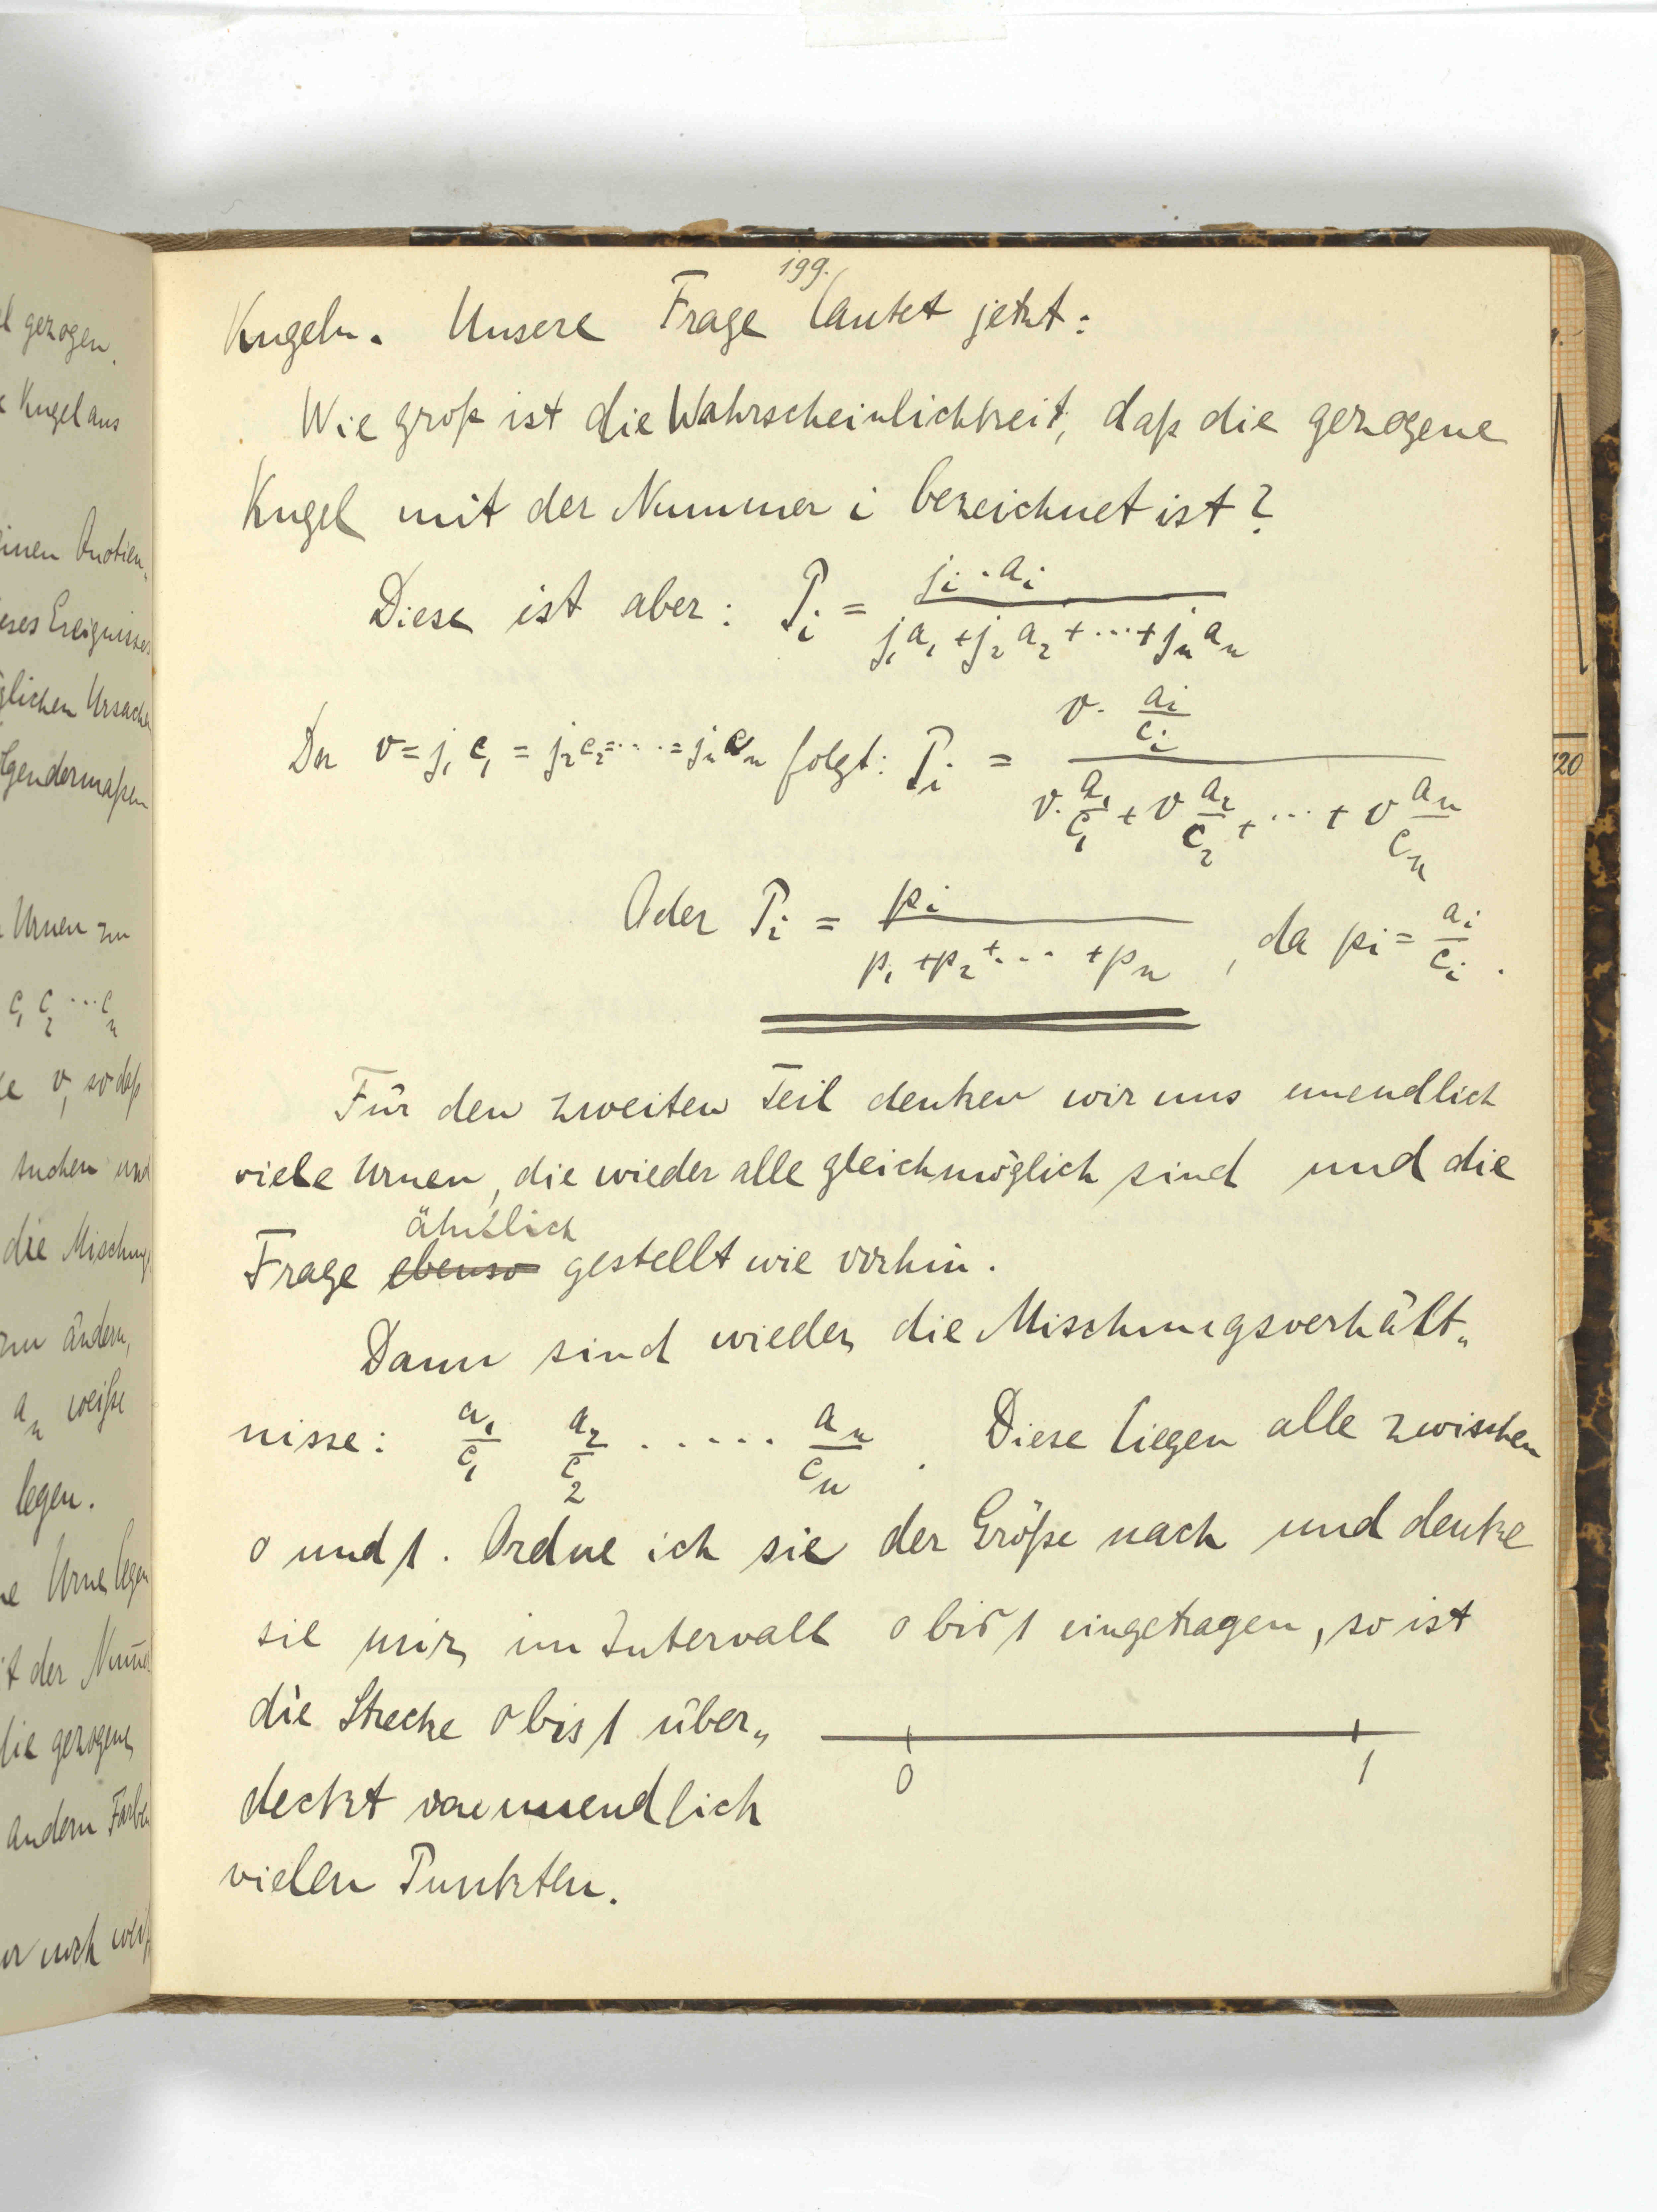 l gezogen.
e Kugel aus
einen Quotien„
eses Ereignisses
glichen Ursachen
lgendermaßen
Urnen zu
c₁ c₂ ... cₙ
e v, so daß
suchen und
die Mischung
zu ändern,
aₙ weiße
legen.
e Urne legen
t der Num̄er
die gezogene
andern Farbe
er noch weiß
199.
Kugeln. Unsere Frage lautet jetzt:
Wie groß ist die Wahrscheinlichkeit, daß die gezogene
Kugel mit der Nummer i bezeichnet ist?
Diese ist aber: Pᵢ = jᵢ · aᵢ / (j₁a₁ + j₂a₂ + ... + jₙaₙ)
Da v = j₁c₁ = j₂c₂ = ... = jₙcₙ folgt: Pᵢ = v · aᵢ/cᵢ / (v · a₁/c₁ + v a₂/c₂ + ... + v aₙ/cₙ)
Oder Pᵢ = pᵢ / (p₁ + p₂ + ... + pₙ), da pᵢ = aᵢ/cᵢ.
Für den zweiten Teil denken wir uns unendlich
viele Urnen, die wieder alle gleichmöglich sind und die
ähnlich
Frage ebenso gestellt wie vorhin.
Dann sind wieder die Mischungsverhält„
nisse: a₁/c₁ a₂/c₂ ...... aₙ/cₙ. Diese liegen alle zwischen
0 und 1. Ordne ich sie der Größe nach und denke
sie mir im Intervall 0 bis 1 eingetragen, so ist
die Strecke 0 bis 1 über„
deckt von unendlich
vielen Punkten.
0 1
120